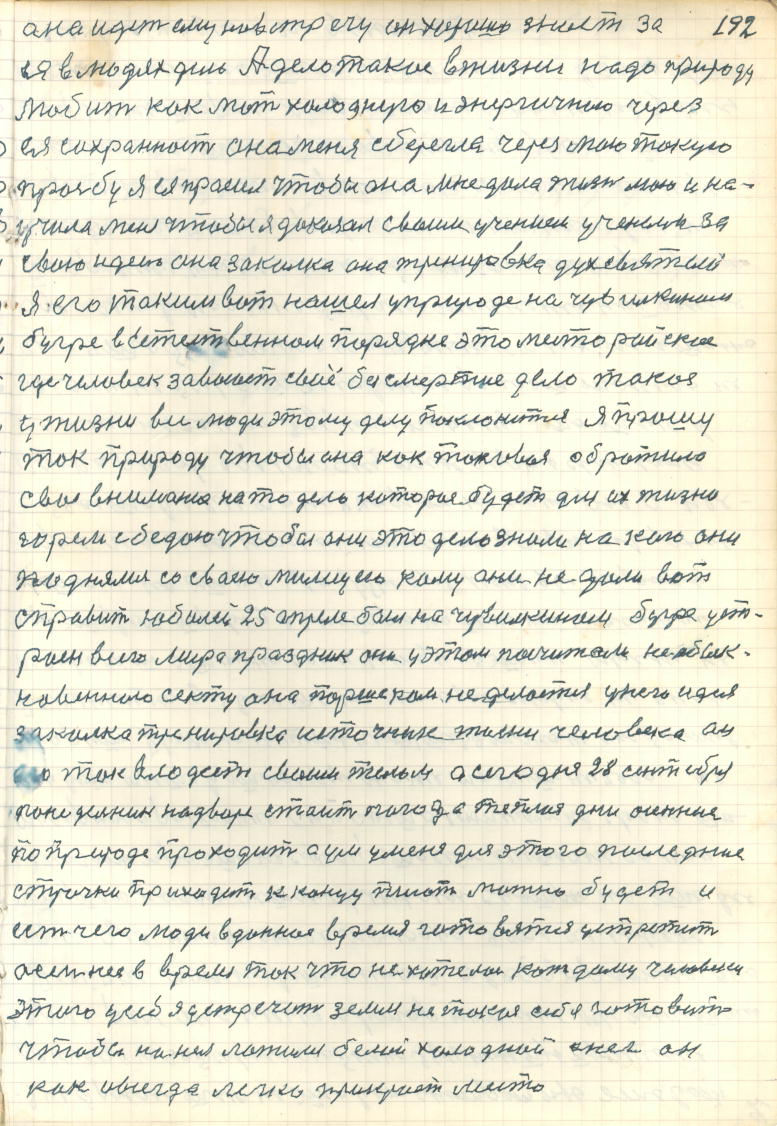 она идет ему навстречу он хорошо знает за 192
ея в людях дель А дело такое в жизни надо природу
любит как мот холодную и энергичною через
ея сохранност она меня сберегла через мою такую
прозбу Я ея прасил чтобы она мне дала жизн мою и на-
учила мене чтобы я доказал своим учением ученым за
свою идею она закалка она тренировка дух святой
Я его таким вот нашел у природе на чувилкином
бугре в естественном порядке это место райское
где человек завоюет своё бесмертие дело такое
у жизни вы люди этому делу поклонится Я прошу
так природу чтобы она как таковая обротила
свое внимания на то дело которое будет для их жизни
горем с бедою чтобы они это дело знали на кого они
подняли со своею милицею кому они не дали вот
справит юбилей 25 апреля был на чувилкином бугре уст-
роен всего мира праздник они у этом посчитали необык-
новенною секту она поршеком не делается у него идея
закалка тренировка источник жизни человека он
его так владеет своим телом а сегодня 28 сентебря
понеделник надворе стаит погода теплая дни осенние
по природе проходит а ум у меня для этого последние
строчки приходят к концу писат можно будет и
ест чего люди в данное время готовятся устретит
осеннее в время так что не хотелос каждому человеку
этого у себя устречат земля не такая себя готовит
чтобы на нея ложился белой холодной снег он
как овсегда легко прикроет место